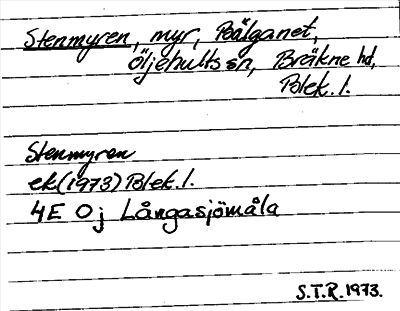 Stenmyren, myr, Boälganet,
Öljehults sn, Bräkne hd,
Blek. l.
Stenmyren
ek (1973) Blek. l.
4E 0j Långasjömåla
S.T.R. 1973.